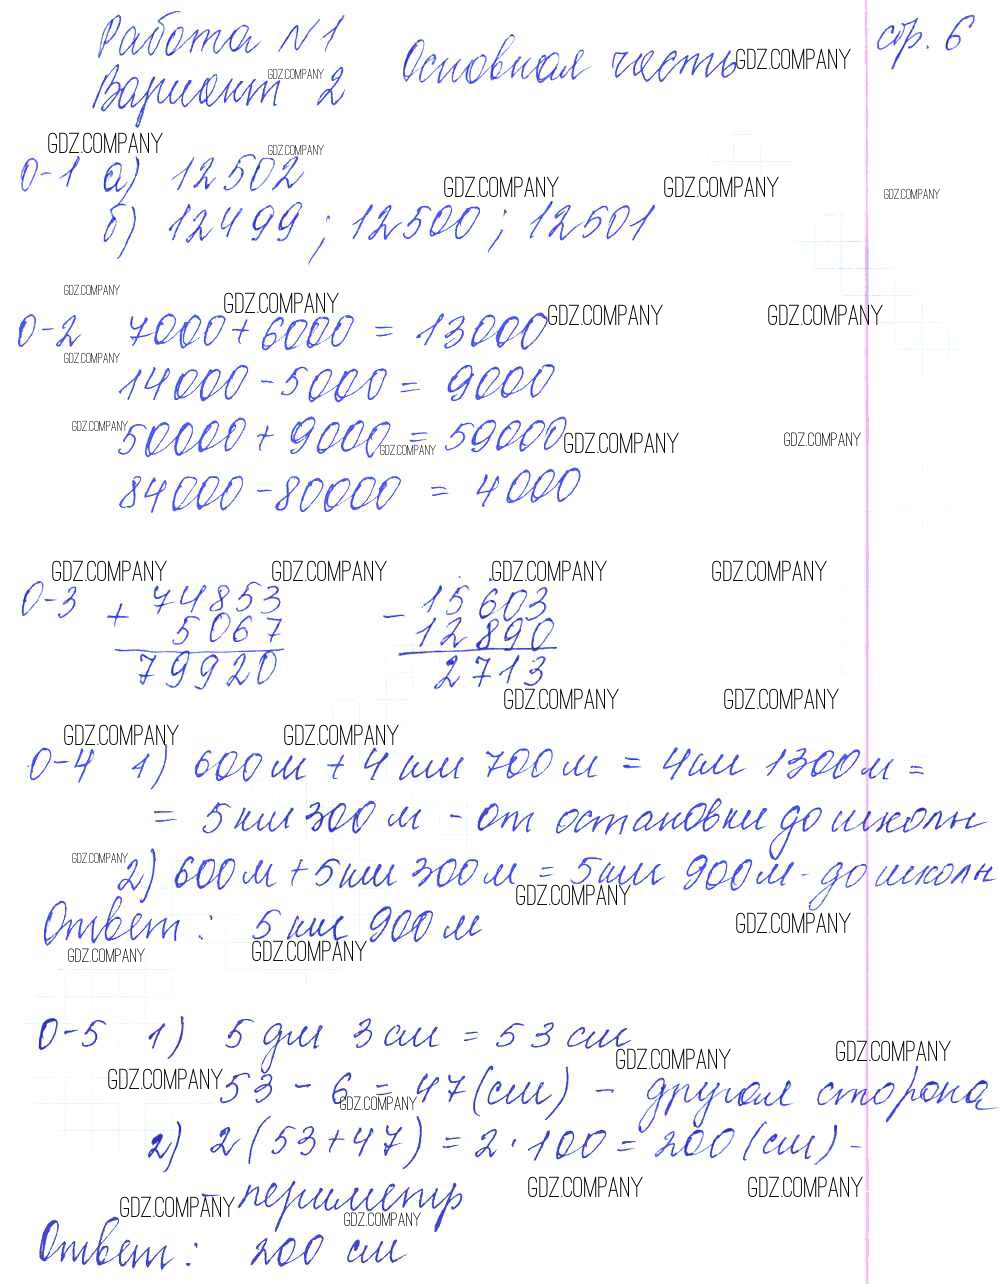 Работа N1 стр. 6
Вариант 2 Основная часть
О-1 а) 12502
б) 12499 ; 12500 ; 12501
О-2 7000 + 6000 = 13000
14000 - 5000 = 9000
50000 + 9000 = 59000
84000 - 80000 = 4000
О-3 + 74853 - 15603
5067 12890
79920 2713
О-4 1) 600 м + 4 км 700 м = 4 км 1300 м =
= 5 км 300 м - от остановки до школы
2) 600 м + 5 км 300 м = 5 км 900 м - до школы
Ответ : 5 км 900 м
О-5 1) 5 дм 3 см = 53 см
53 - 6 = 47 (см) - другая сторона
2) 2 (53 + 47) = 2 · 100 = 200 (см) -
- периметр
Ответ : 200 см
GDZ.COMPANY